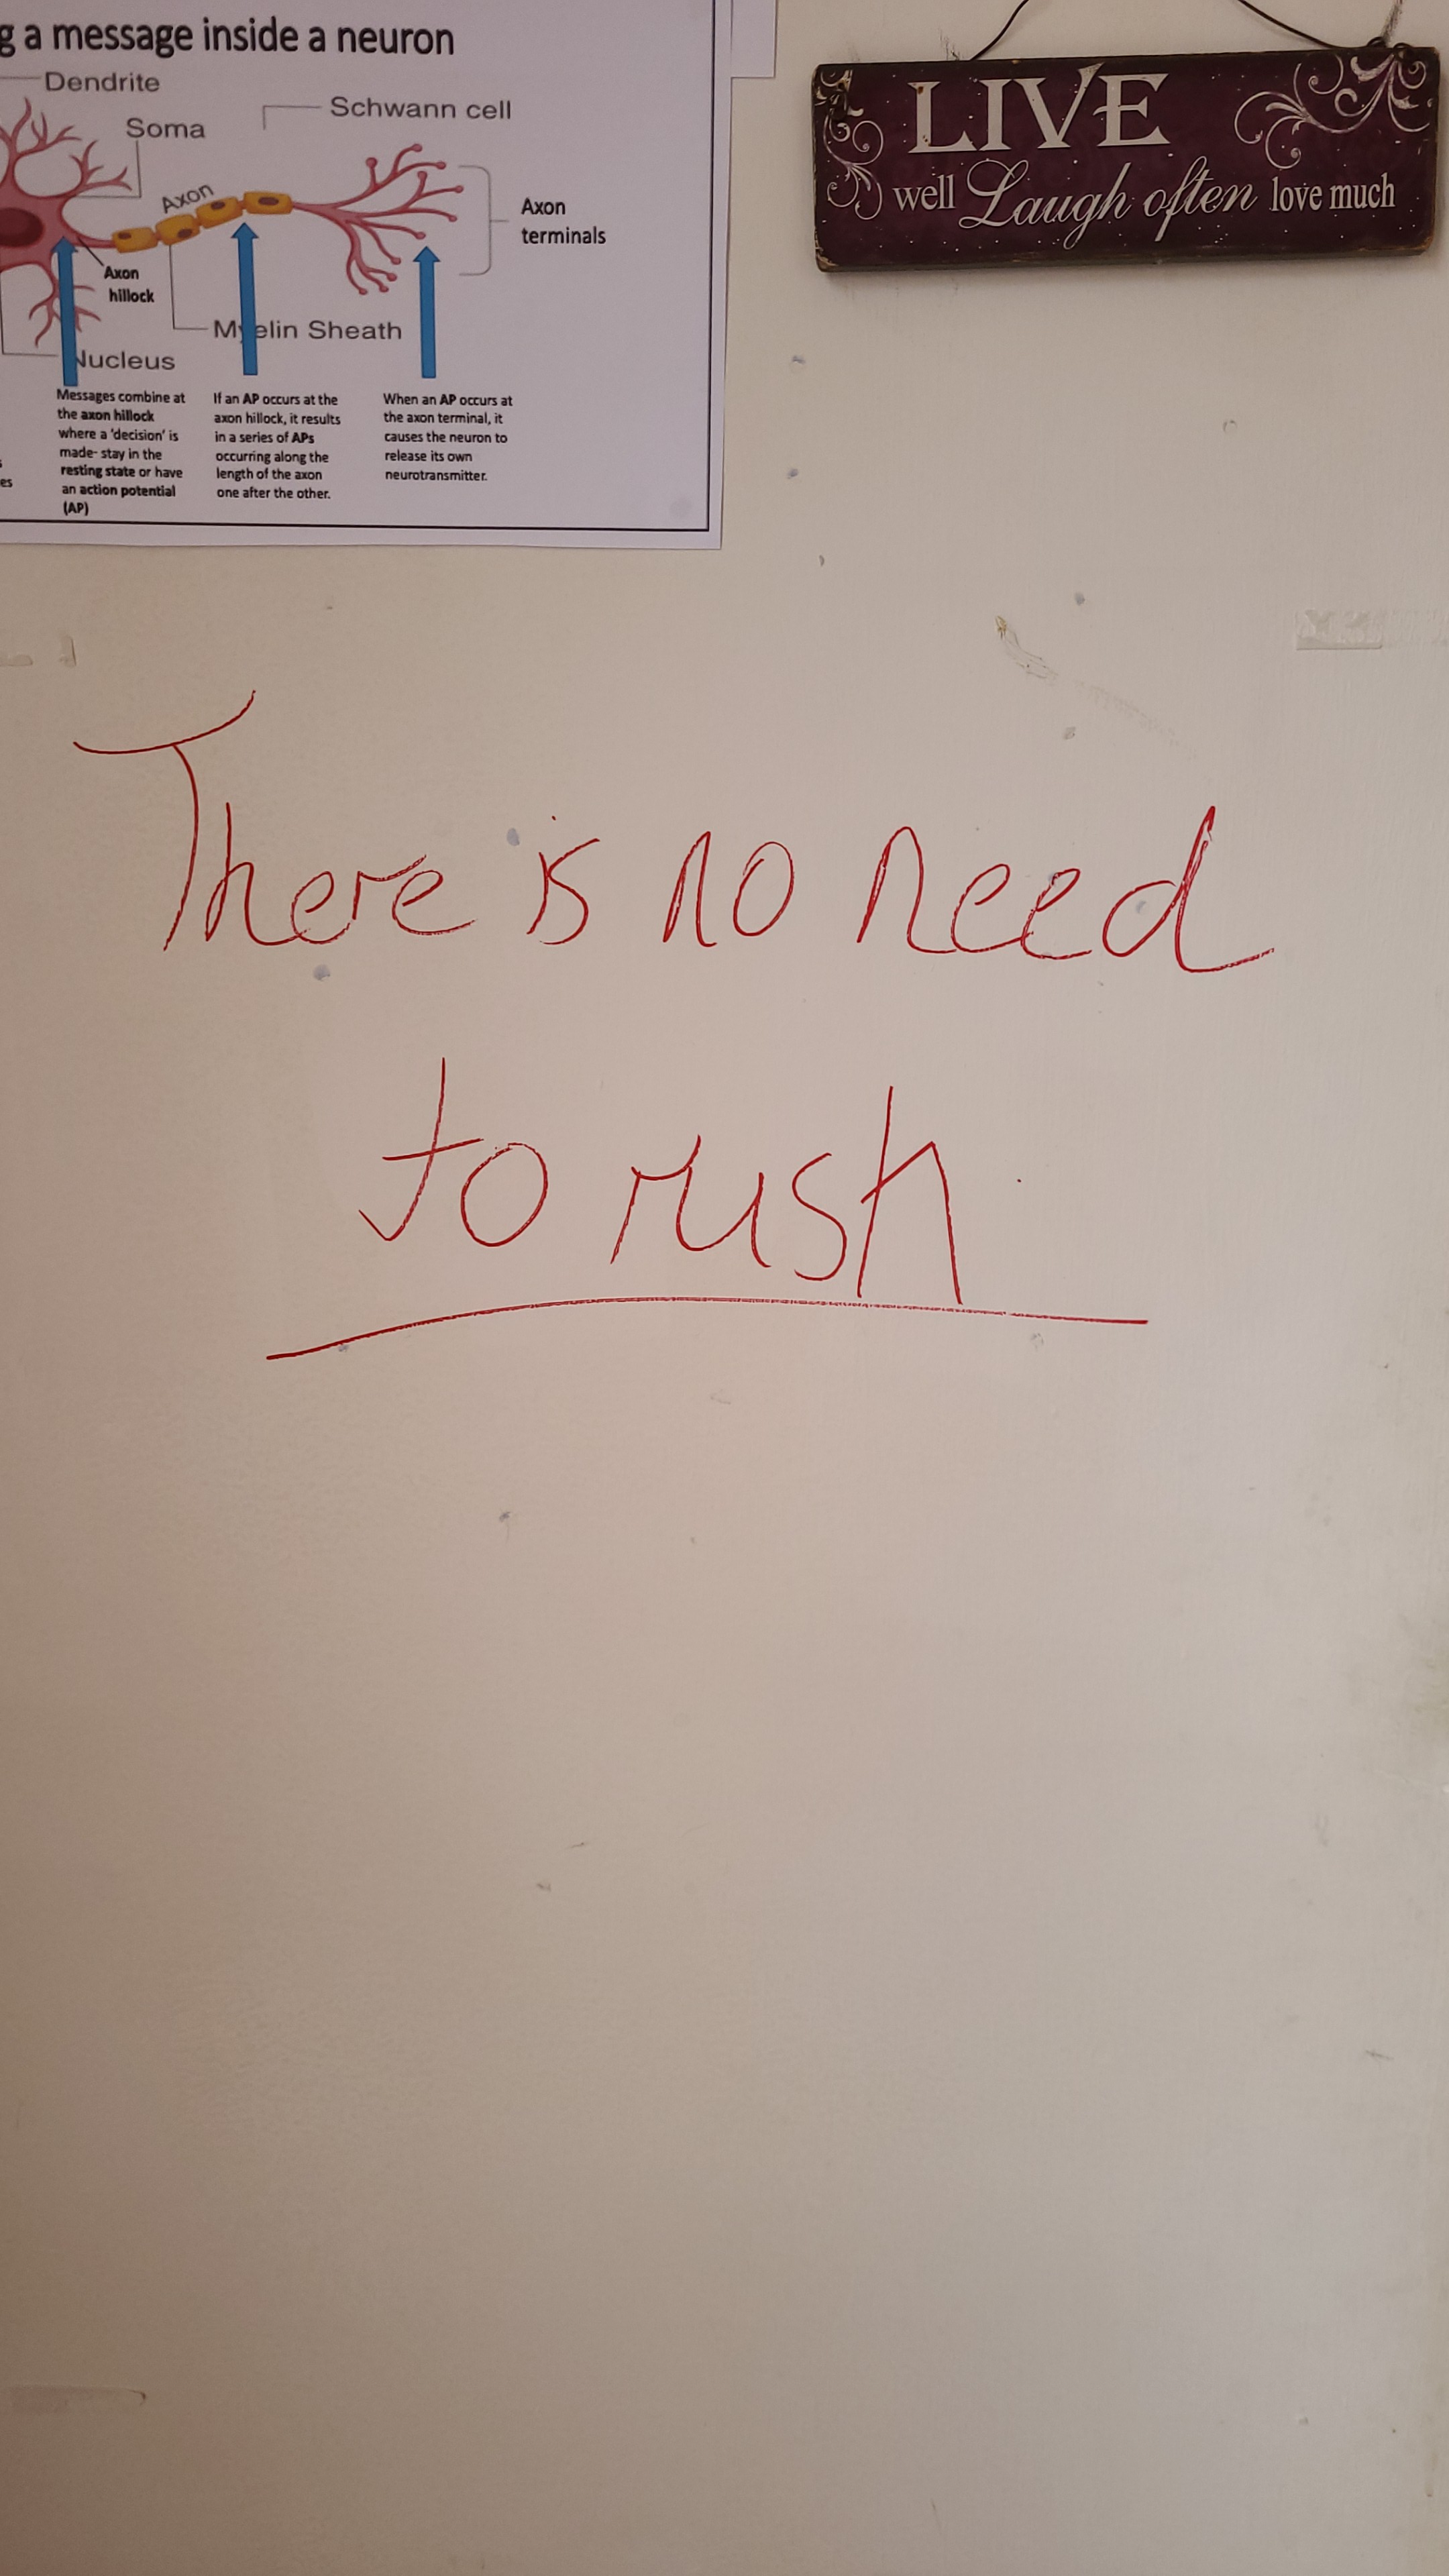 g a message inside a neuron
Dendrite
Soma
Schwann cell
Axon
Axon
terminals
Axon
hillock
Myelin Sheath
Nucleus
Messages combine at
the axon hillock
where a 'decision' is
made- stay in the
resting state or have
an action potential
(AP)
If an AP occurs at the
axon hillock, it results
in a series of APs
occurring along the
length of the axon
one after the other.
When an AP occurs at
the axon terminal, it
causes the neuron to
release its own
neurotransmitter.
es
LIVE
well Laugh often love much
There is no need
to rush